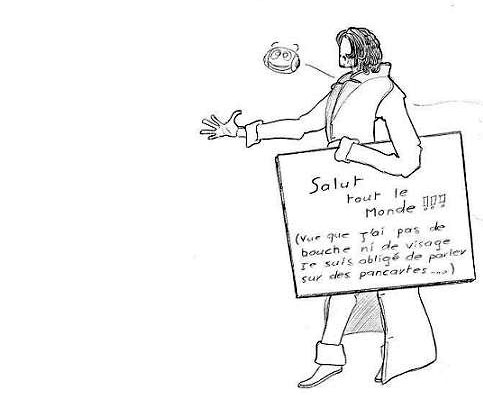 Salut
tout le
Monde !!!
(vue que j'ai pas de
bouche ni de visage
je suis obligé de parler
sur des pancartes....)